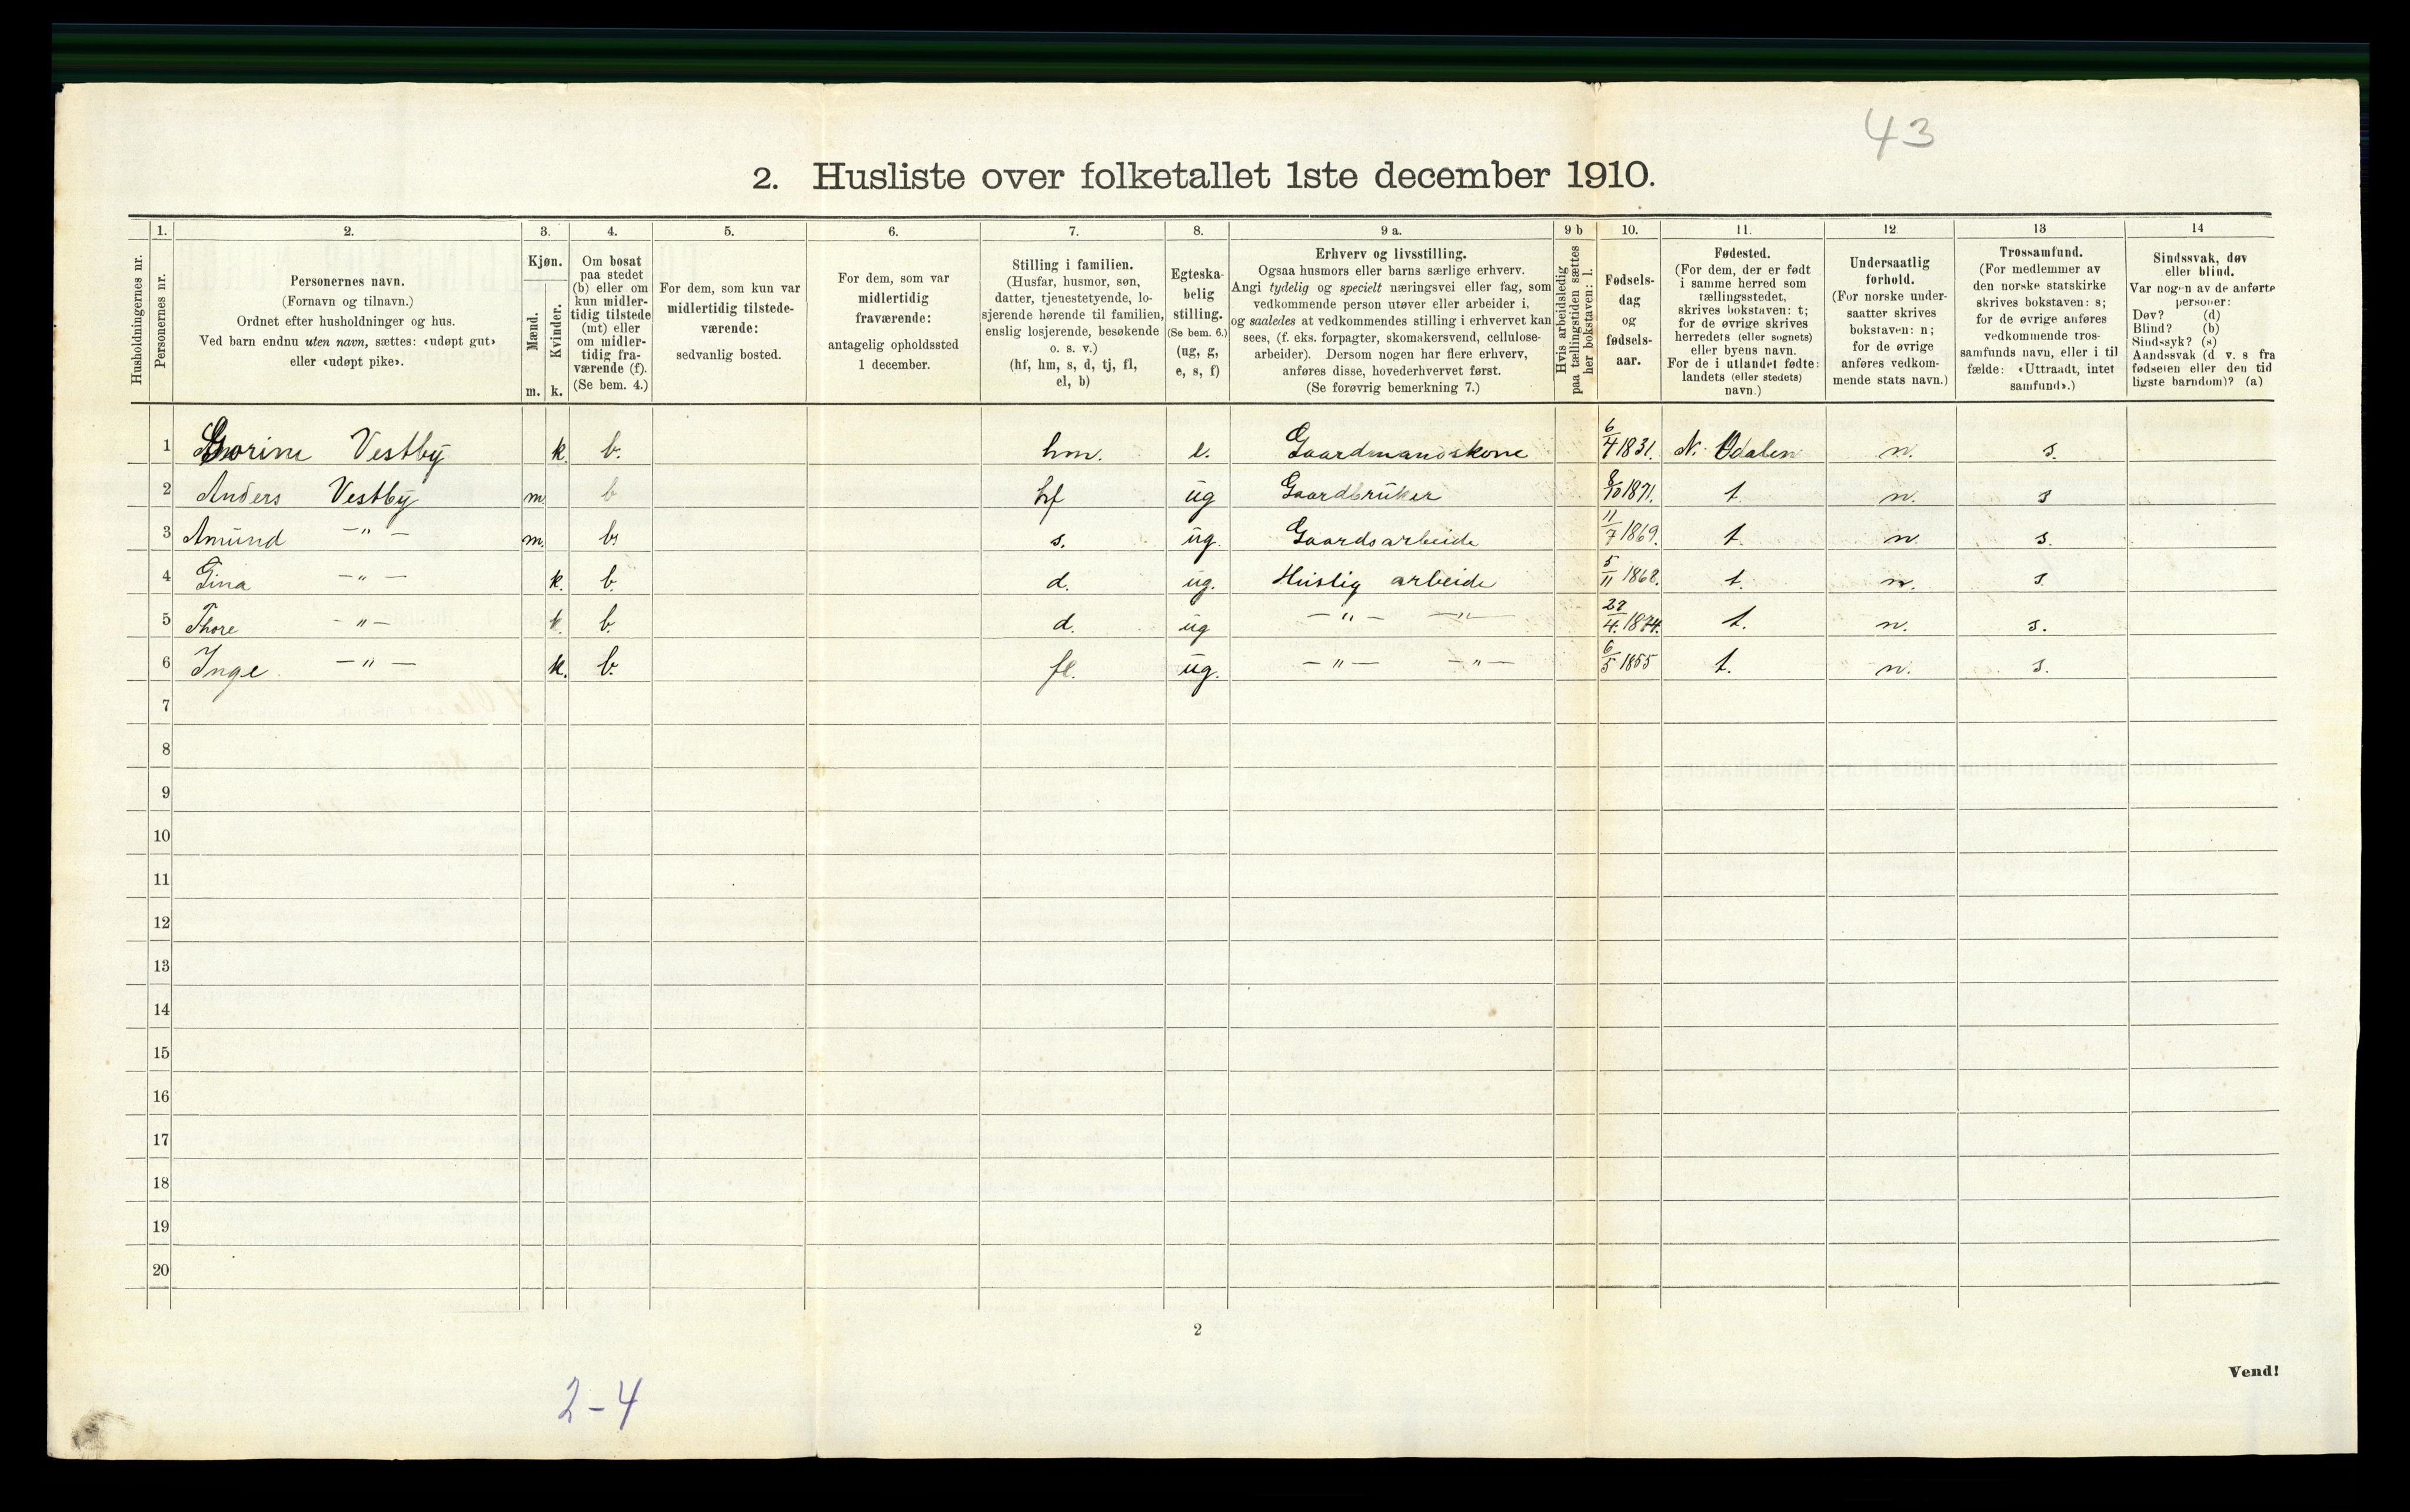 43
2. Husliste over folketallet 1ste december 1910.
Husholdningernes nr.
1. Personernes nr.
2. Personernes navn.
(Fornavn og tilnavn.)
Ordnet efter husholdninger og hus.
Ved barn endnu uten navn, sættes: «udøpt gut»
eller «udøpt pike».
3. Kjøn.
Mænd. m.
Kvinder. k.
4. Om bosat
paa stedet
(b) eller om
kun midler-
tidig tilstede
(mt) eller
om midler-
tidig fra-
værende (f).
(Se bem. 4.)
5. For dem, som kun var
midlertidig tilstede-
værende:
sedvanlig bosted.
6. For dem, som var
midlertidig
fraværende:
antagelig opholdssted
1 december.
7. Stilling i familien.
(Husfar, husmor, søn,
datter, tjenestetyende, lo-
sjerende hørende til familien,
enslig losjerende, besøkende
o. s. v.)
(hf, hm, s, d, tj, fl,
el, b)
8. Egteska-
belig
stilling.
(Se bem. 6.)
(ug, g,
e, s, f)
9 a. Erhverv og livsstilling.
Ogsaa husmors eller barns særlige erhverv.
Angi tydelig og specielt næringsvei eller fag, som
vedkommende person utøver eller arbeider i,
og saaledes at vedkommendes stilling i erhvervet kan
sees, (f. eks. forpagter, skomakersvend, cellulose-
arbeider). Dersom nogen har flere erhverv,
anføres disse, hovederhvervet først.
(Se forøvrig bemerkning 7.)
9 b Hvis arbeidsledig
paa tællingstiden sættes
her bokstaven: l.
10. Fødsels-
dag
og
fødsels-
aar.
11. Fødested.
(For dem, der er født
i samme herred som
tællingsstedet,
skrives bokstaven: t;
for de øvrige skrives
herredets (eller sognets)
eller byens navn.
For de i utlandet fødte:
landets (eller stedets)
navn.)
12 Undersaatlig
forhold.
(For norske under-
saatter skrives
bokstaven: n;
for de øvrige
anføres vedkom-
mende stats navn.)
13 Trossamfund.
(For medlemmer av
den norske statskirke
skrives bokstaven: s;
for de øvrige anføres
vedkommende tros-
samfunds navn, eller i til
fælde: «Uttraadt, intet
samfund».)
14 Sindssvak, døv
eller blind.
Var nogen av de anførte
personer:
Døv? (d)
Blind? (b)
Sindssyk? (s)
Aandssvak (d v. s fra
fødselen eller den tid
ligste barndom)? (a)
1 Vestby k. b. hm. e. Gaardmandskone 6/4 1831. N. Odalen n. s.
2 Anders Vestby m b hf ug Gaardbruker 8/10 1871. t. n. s
3 Amund — " — m. b. s. ug. Gaardsarbeide 11/7 1869. t. n s.
4 Gina — " — k. b. d. ug. Huslig arbeide 5/11 1868. t. n. s
5 Thore — " — k. b. d. ug — " — — " — 1874. t. n. s.
6 Inge — " — k. b. fl. ug. — " — — " — 6/5 1855 t. n. s.
7
8
9
10
11
12
13
14
15
16
17
18
19
20
2
Vend!
2-4